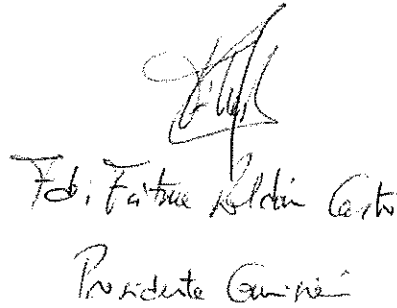 Fdo: Fátima Roldán Castro
Presidenta Comisión